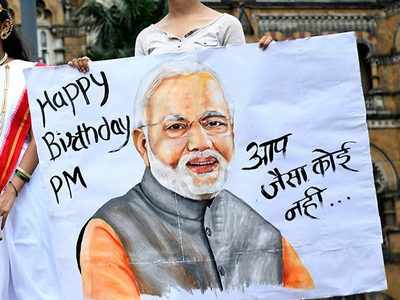 Happy
Birthday
PM
आप
जैसा कोई
नही ...